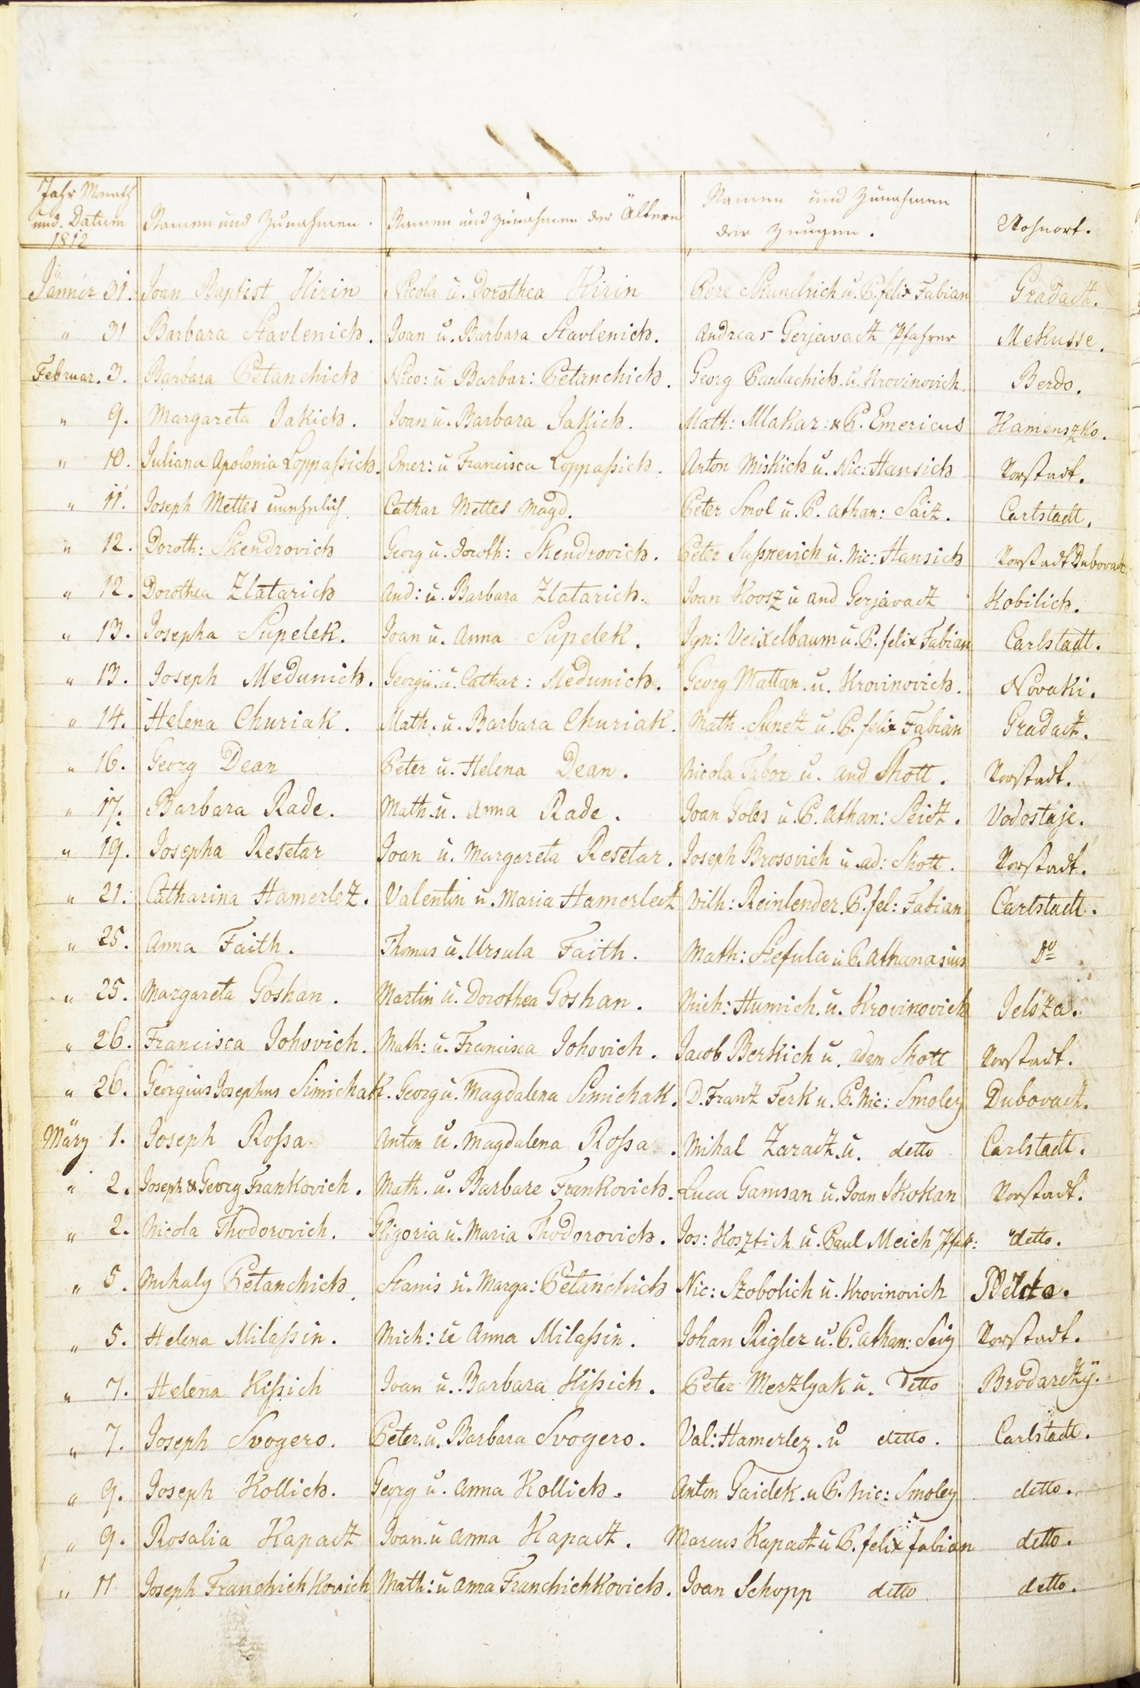 Jahr Monath und Datum 1812 Namen und Zunahmen. Namen und Zunahmen der Ältern Namen und Zunahmen der Zeugen. Wohnort.
Jänner 31. Joan Baptist Hirin Nicola u. Dorothea Hirin Pere Skundrich u. P. felix Fabian Gradatz.
" 31 Barbara Stavlenich. Joan u. Barbara Stavlenich. Andreas Gerjavatz Pfahrer Mekusse.
Februar. 3. Barbara Petanchich Nico: u Barbar: Petanchich. Georg Paulachich u. Krovinovich Berdo.
" 9. Margareta Jakich. Joan u. Barbara Jakich. Math: Mlakar: u P. Emericus Kamenszko.
" 10. Juliana Apolonia Loppaßich. Emer: u Francisca Loppaßich. Anton Miskich u. Nic: Hansich Vorstadt.
" 11. Joseph Mettes unehnlich Cathar Mettes Magd. Peter Smol u. P. Athan: Saitz. Carlstadt.
" 12. Doroth: Skendrovich Georg u. Doroth: Skendrovich. Peter Sußnevich u. Nic: Hansich Vorstadt Dubovatz
" 12. Dorothea Zlatarich And: u. Barbara Zlatarich. Joan Koosz u and Gerjavatz Kobilich.
" 13. Josepha Supelek. Joan u. Anna Supelek. Ign: Veixelbaum u. P. felix Fabian Carlstadt.
" 13. Joseph Medunich. Georgii u. Cathar: Medunich. Georg Mattan u. Krovinovich. Novaki.
" 14. Helena Churiak. Math. u. Barbara Churiak. Math. Sunetz u. P. felix Fabian Gradatz.
" 16. Georg Dean Peter u. Helena Dean. Nicola Tabor u. and Skott. Vorstadt.
" 17. Barbara Rade. Math. u. Anna Rade. Joan Goles u. P. Athan: Seitz. Vodostaje.
" 19. Josepha Resetar Joan u. Margareta Resetar. Joseph Brosovich u. ad: Skott. Vorstadt.
" 21. Catharina Hamerletz. Valentin u. Maria Hamerletz Vilh: Reinlender P. fel: Fabian Carlstadt.
" 25. Anna Faith. Thomas u. Ursula Faith. Math: Stefula u P. Athanasius Do
" 25. Margareta Goshan. Martin u. Dorothea Goshan. Mich: Humich u. Krovinovich Jelsza.
" 26. Francisca Johovich. Math: u. Francisca Johovich. Jacob Berkich u. adam Skott Vorstadt.
" 26. Georgius Josephus Simichak. Georg u. Magdalena Simichak. D. Frantz Ferk u. P. Nic: Smoley Dubovatz.
März 1. Joseph Roßa. Anton u. Magdalena Roßa. Mihal Zaratz u. detto Carlstadt.
" 2. Joseph & Georg Frankovich. Math. u. Barbare Frankovich. Luca Gamsan u. Joan Skokan Vorstadt.
" 2. Nicola Thodorovich. Gligoria u. Maria Thodorovich. Jos: Kosztich u. Paul Meich Pfar: detto.
" 5. Mihaly Petanchich. Stanis u. Marga: Petanchich Nic: Szobolich u. Krovinovich
" 5. Helena Milaßin. Mich: u Anna Milaßin. Johan Rigler u. P. athan: Seiz Vorstadt.
" 7. Helena Kißich Joan u. Barbara Kißich. Peter Merzlyak u. Detto Brodarczÿ.
" 7. Joseph Svogero. Peter u. Barbara Svogero. Val: Hamerlez u detto. Carlstadt.
" 9. Joseph Kollich. Georg u. Anna Kollich. Anton Gaidek u P. Nic: Smoley detto.
" 9. Rosalia Kapatz Joan u Anna Kapatz. Marcus Kapatz u P. felix fabian detto.
" 11 Joseph Franchichkovich Math: u Anna Franchichkovich. Joan Schopp detto detto.